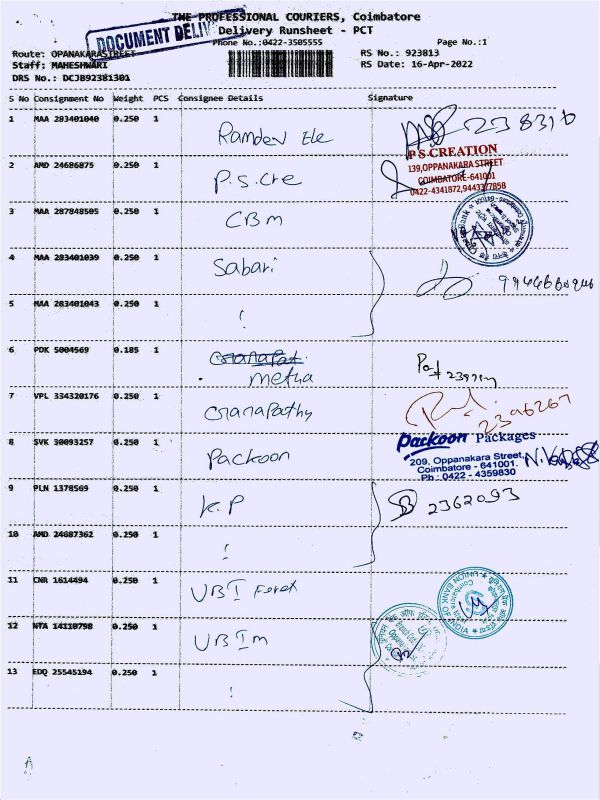 THE PROFESSIONAL COURIERS, Coimbatore
DOCUMENT DELIV
Delivery Runsheet - PCT
Phone No.:0422-3505555 Page No.:1
Route: OPANAKARASTREET RS No.: 923813
Staff: MAHESHWARI RS Date: 16-Apr-2022
DRS No.: DCJB92381301
S No Consignment No Weight PCS Consignee Details Signature
1 MAA 283401040 0.250 1 Ramdev Ele
P S CREATION
139,OPPANAKARA STREET
COIMBATORE-641001
0422-4341872,9443377858
2 AMD 24686875 0.250 1 P.S.Cre
3 MAA 287848505 0.250 1 CBM
4 MAA 283401039 0.250 1 Sabari
5 MAA 283401043 0.250 1
6 PDK 5004569 0.185 1 Ganapat
metha
7 VPL 334320176 0.250 1 Ganapathy
8 SVK 30093257 0.250 1 Packoon
Packoon Packages
209, Oppanakara Street,
Coimbatore - 641001.
Ph : 0422 - 4359830
9 PLN 1378569 0.250 1 K.P 2362093
10 AMD 24687362 0.250 1
11 CNR 1614494 0.250 1 UBI Forex
UNION BANK OF INDIA
12 NTA 14110798 0.250 1 UBI m
13 EDQ 25545194 0.250 1